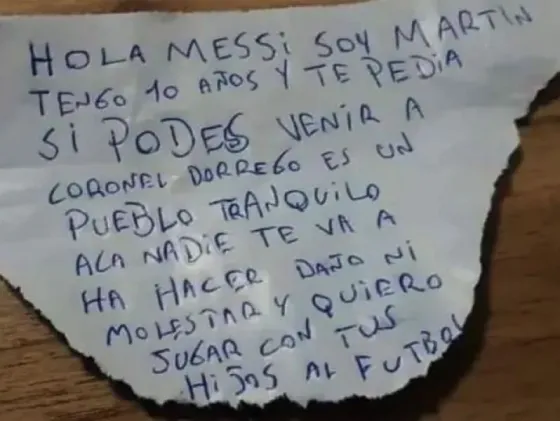 HOLA MESSi SOY MARTIN
TENGO 10 AÑOS Y TE PEDIA
Si PODES VENIR A
CORONEL DORREGO ES UN
PUEBLO TRANQUILO
ACA NADIE TE VA A
HA HACER DAÑO NI
MOLESTAR Y QUIERO
JUGAR CON TUS
HiJOS AL FUTBOL